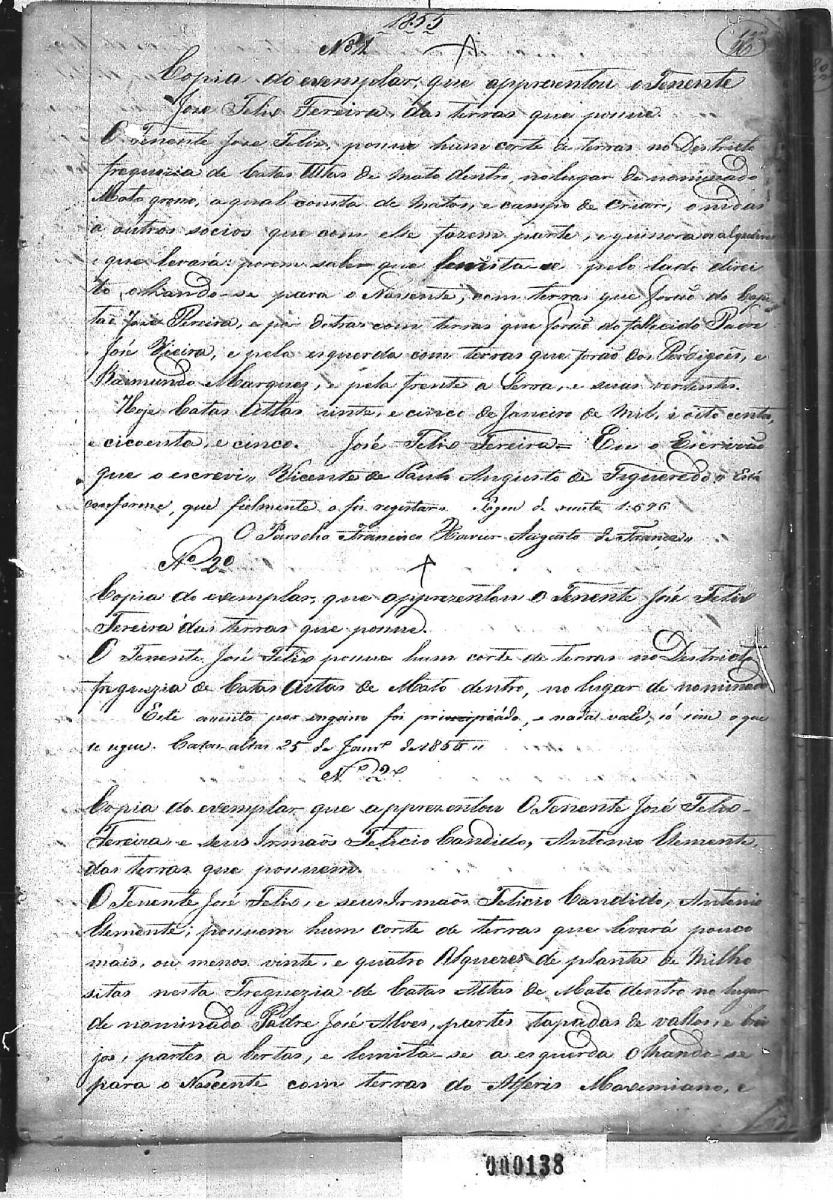 1855
Nº 1
Copia do exemplar, que apprezentou o Tenente
José Felix Ferreira, das terras que possue.
O Tenente José Felix, possue hum corte de terras no Destricto
freguezia de Catas Altas de Mato dentro no lugar de nominado
Mato groço, a qual consta de Matos, e campo de criar,
a outros socios que com elle fazem parte, e
que levará: porem saber que lemita-se pelo lado direi
to, olhando-se para o Nascente, com terras que forão do Capi
tão José Pereira, e por detras com terras que forão do falecido Padre
José Vieira, e pela esquerda com terras que forão dos Perdigoẽs, e
Raimundo Marquez, e pela frente a Serra, e seus vertentes.
Hoje Catas Altas vinte, e cinco de Janeiro de mil, e oito centos,
e cicoenta, e cinco. José Felix Ferreira = Eu o Escrivão
que o escrevi,, Vicente de Paula Augusto de Figueredo,, Está
conforme, que fielmente o fiz registar. Pagou de 1:696
O Parocho Francisco Xavier Augusto de França,,
Nº 2º
Copia do exemplar, que apprezentou O Tenente José Felix
Ferreira das terras que possue.
O Tenente José Felix possue hum corte de terras no Destricto
freguezia de Catas Altas de Mato dentro, no lugar de nominado
Este acento por engano foi principiado, e nada vale, só sim o que
se segue. Catas altas 25 de Janrº de 1855,,
Nº 2º
Copia do exemplar que apprezentou O Tenente José Felix
Ferreira e seus Irmaõs Felicio Candido, Antonio Clemente
das terras que possuem.
O Tenente José Felix, e seus Irmaõs Felicio Candido, Antonio
Clemente; possuem hum corte de terras que levará pouco
mais, ou menos vinte, e quatro Alqueres de planta de Milho
sitas nesta Freguezia de Catas Altas de Mato dentro no lugar
de nominado Padre José Alves, partes tapadas de vallos, e
partes a bertas, e lemita-se a esquerda Olhando-se
para o Nascente com terras do Alferis Maximiano, e
000138